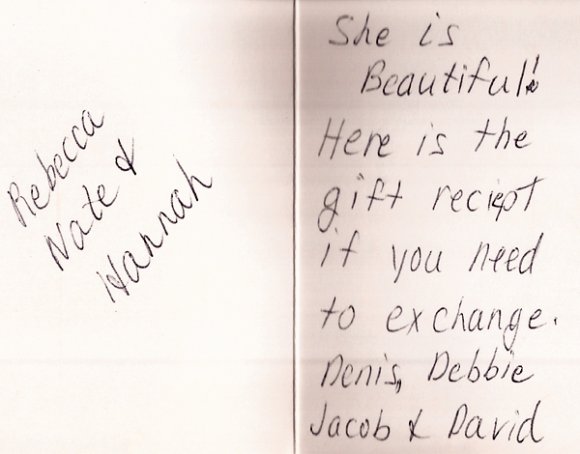 Rebecca
Nate &
Hannah
She is
Beautiful!
Here is the
gift reciept
if you need
to exchange.
Denis, Debbie
Jacob & David